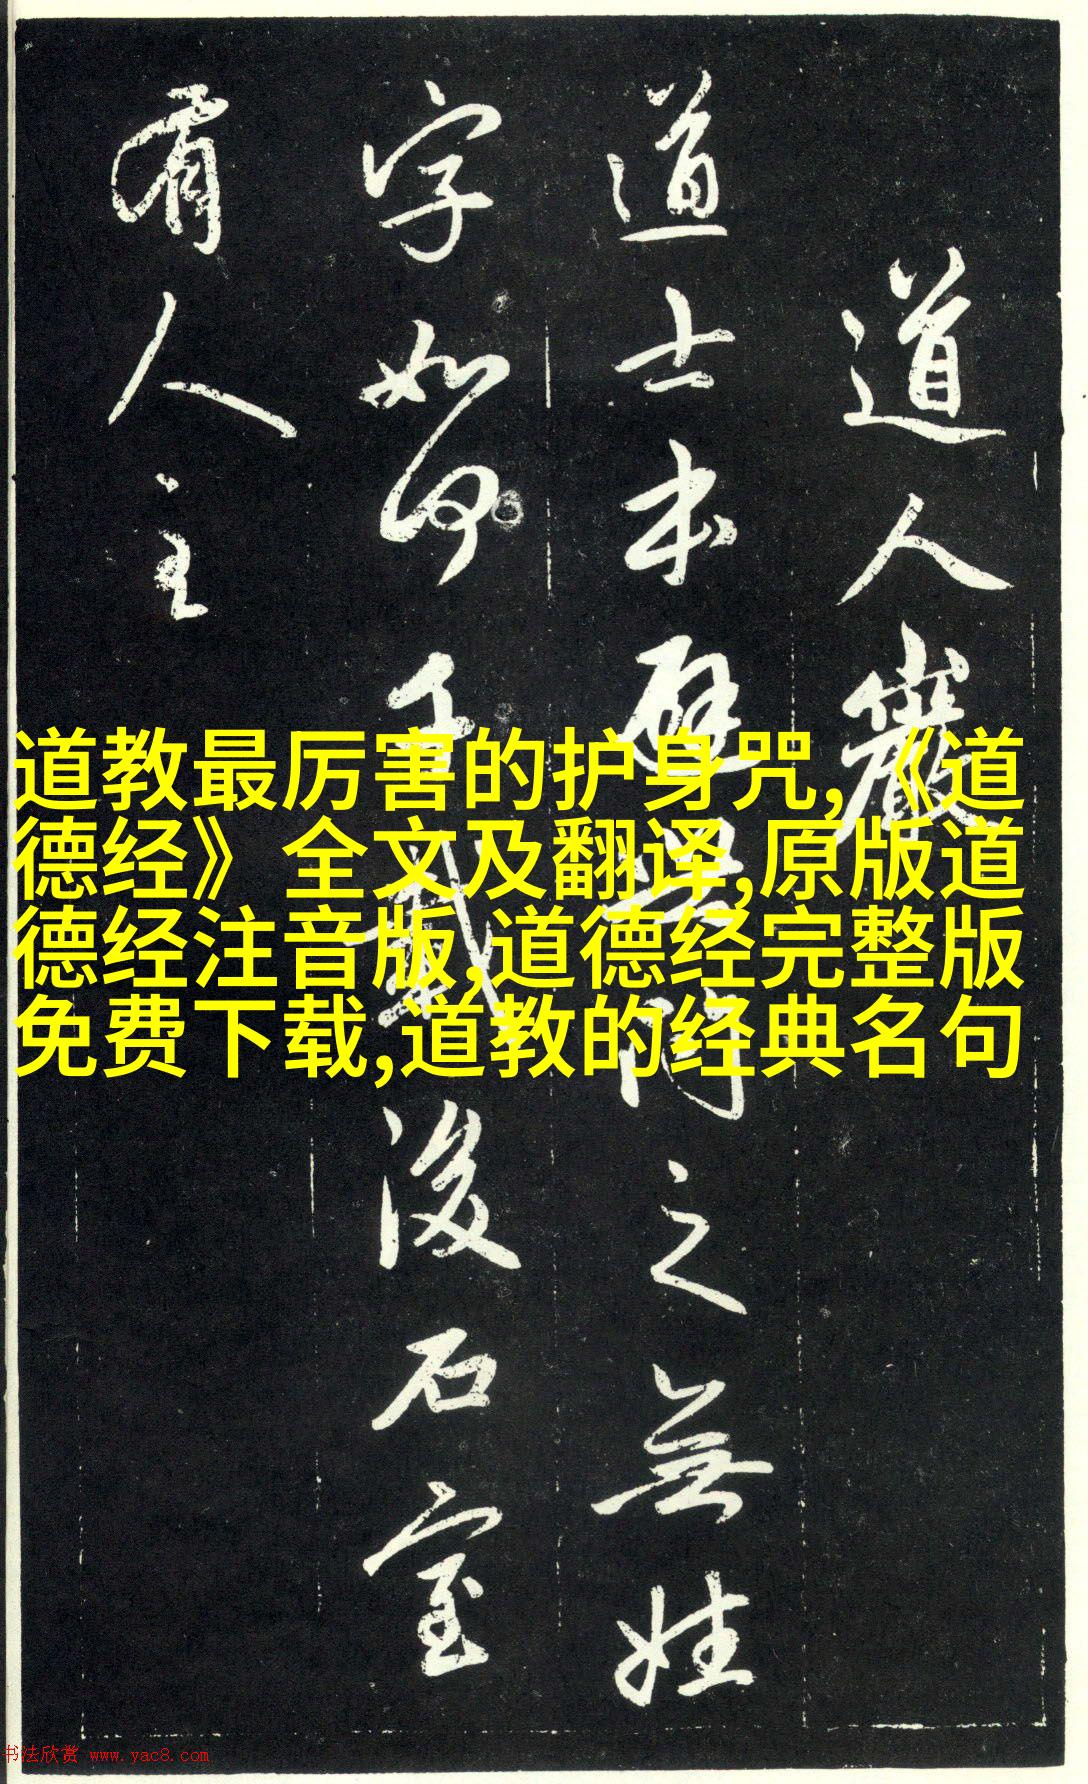 道人巖
道士本避學得之無姓
字如何千載後石室
有人主
道教最厉害的护身咒,《道
德经》全文及翻译,原版道
德经注音版,道德经完整版
免费下载,道教的经典名句
书法欣赏 www.yac8.com